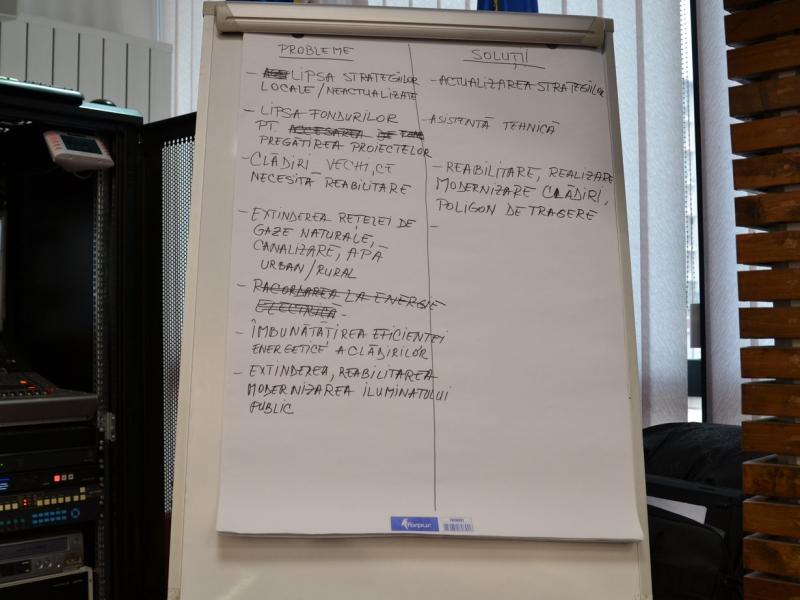 PROBLEME
- LIPSA STRATEGIILOR
LOCALE/NEACTUALIZATE
- LIPSA FONDURILOR
PT. ACCESAREA DE
PREGĂTIREA PROIECTELOR
- CLĂDIRI VECHI, CE
NECESITĂ REABILITARE
- EXTINDEREA REȚELEI DE
GAZE NATURALE,
CANALIZARE, APĂ
URBAN/RURAL
- RACORDAREA LA ENERGIE
ELECTRICĂ
- ÎMBUNĂTĂȚIREA EFICIENȚEI
ENERGETICE A CLĂDIRILOR
- EXTINDEREA, REABILITAREA
MODERNIZAREA ILUMINATULUI
PUBLIC
SOLUȚII
- ACTUALIZAREA STRATEGIILOR
- ASISTENȚĂ TEHNICĂ
- REABILITARE, REALIZARE
MODERNIZARE CLĂDIRI,
POLIGON DE TRAGERE
-
forpus